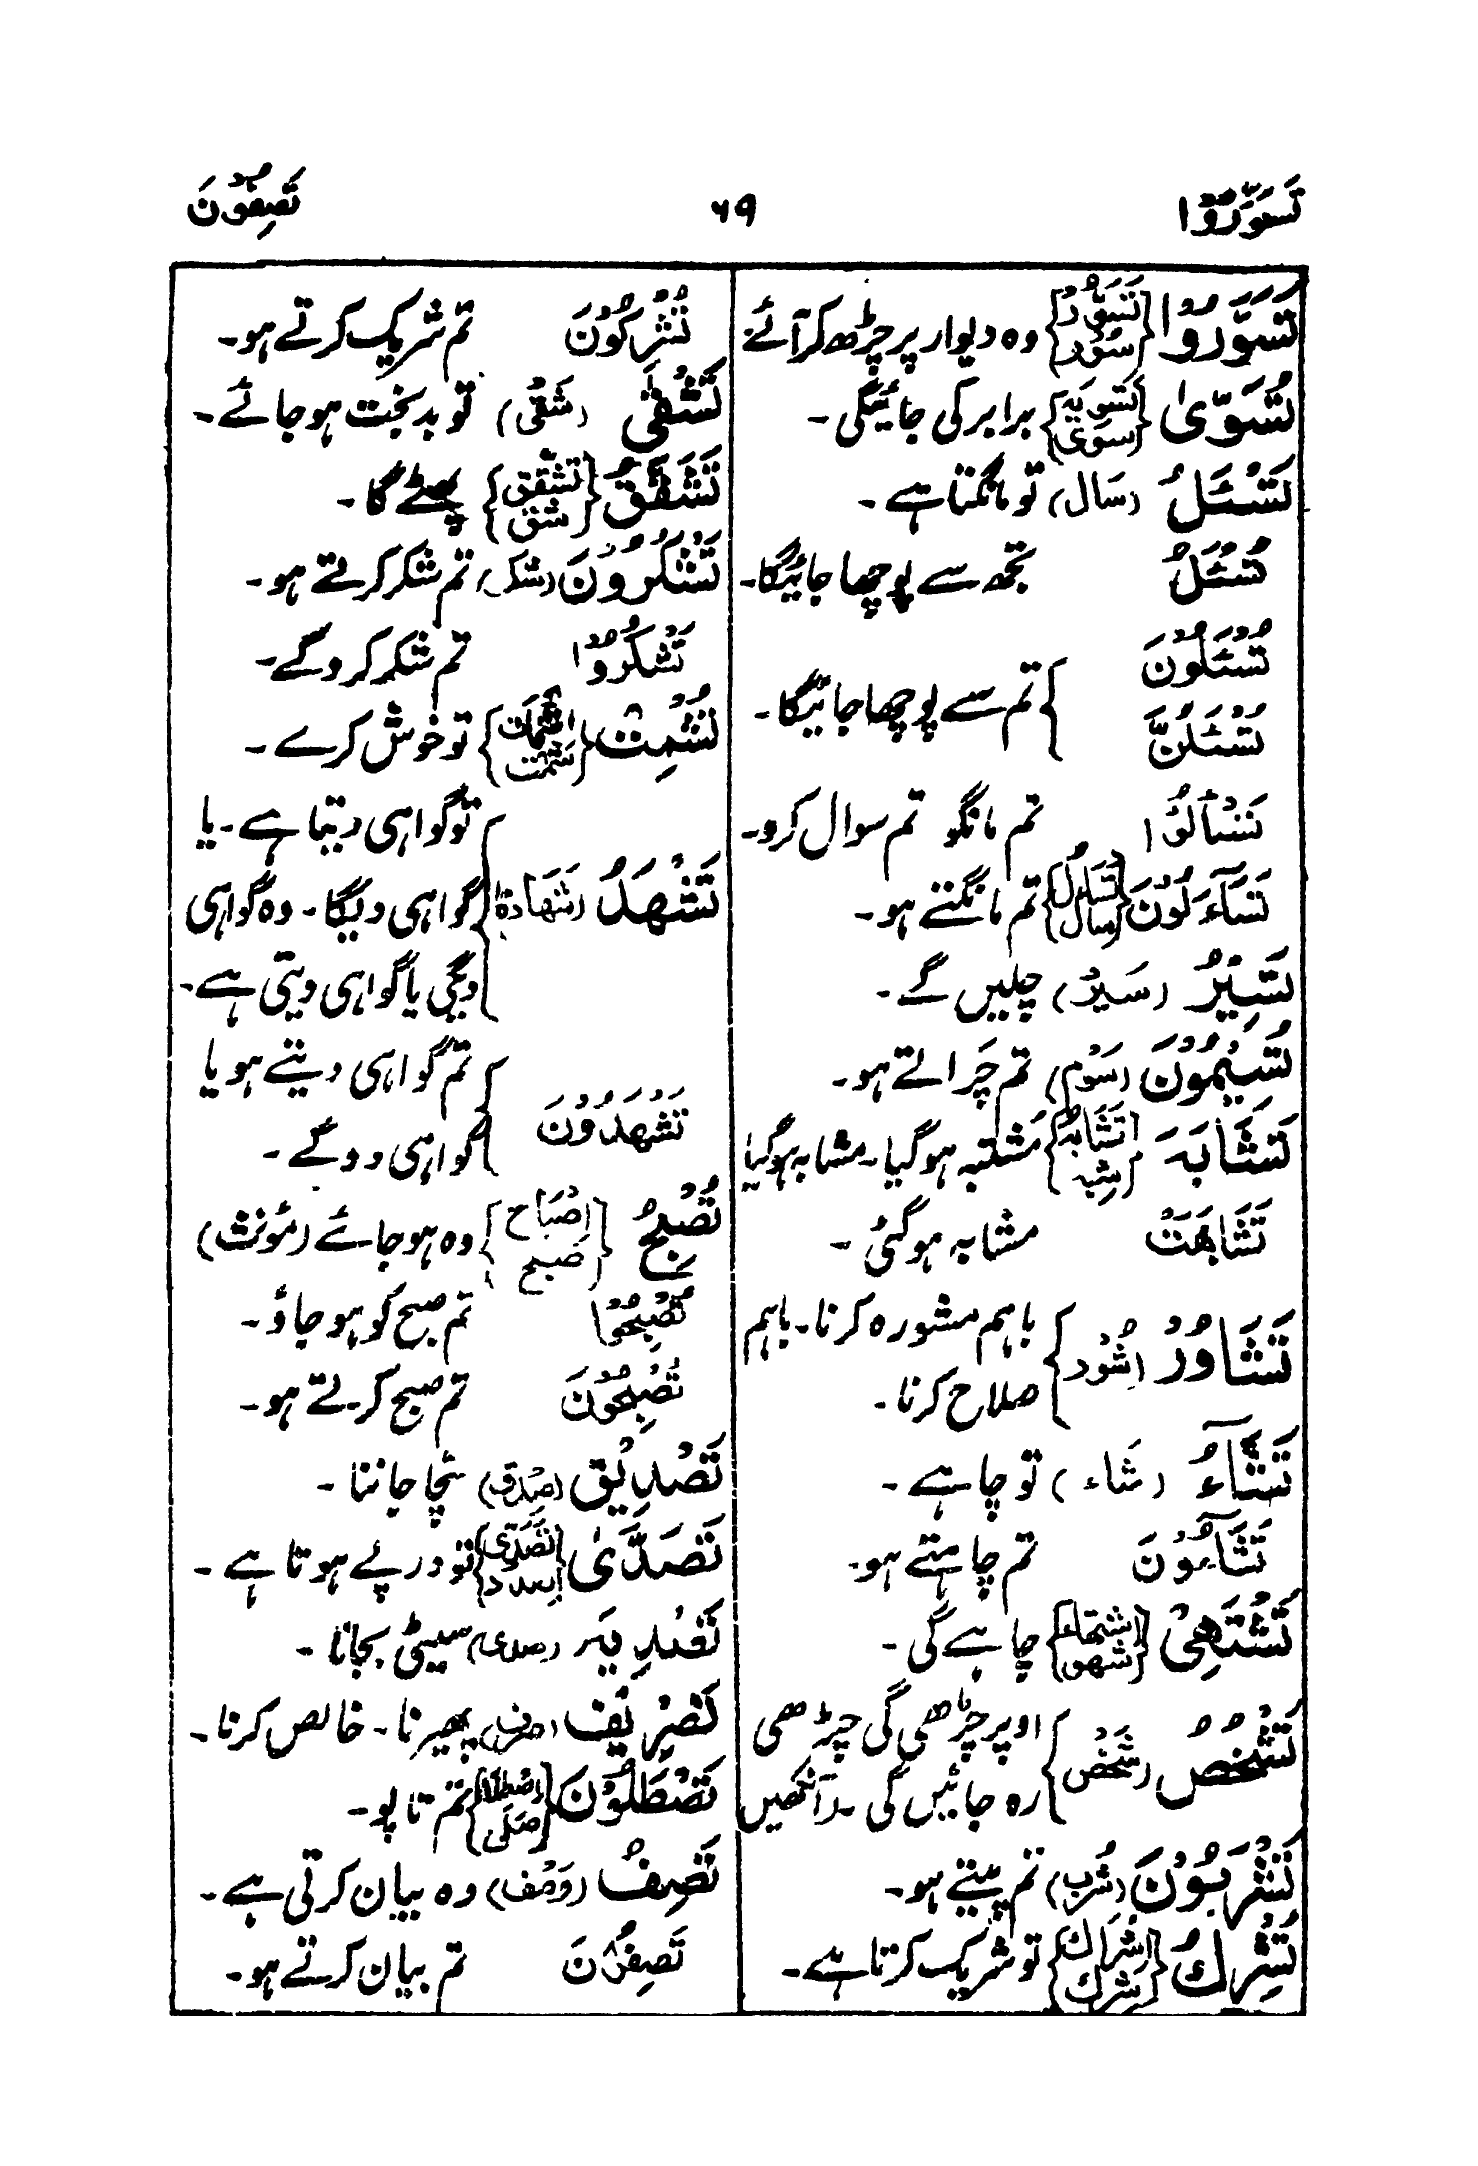 تَسَوَّرُوْا ٦٩ تَصِفُوْنَ
تَسَوَّرُوْا {تَسَوُّر سُوْر} وہ دیوار پر چڑھ کر آئے
تُسَوّٰی {تَسْوِیَہ سَوِیَ} برابر کی جائیگی ۔
تَسْئَلُ (سَال) تو مانگتا ہے ۔
تُسْئَلُ تجھ سے پوچھا جائیگا ۔
تُسْئَلُوْنَ
تُسْئَلُنَّ } تم سے پوچھا جائیگا ۔
تَسْأَلُوْا تم مانگو تم سوال کرو ۔
تَسَآءَلُوْنَ {تَسَاءُل سَال} تم مانگتے ہو ۔
تَسِیْرُ (سَیْرٌ) چلیں گے ۔
تُسِیْمُوْنَ (سَوْم) تم چراتے ہو ۔
تَشَابَہَ {تَشَابُہ شبہ} مُشتبہ ہو گیا ۔ مشابہ ہو گیا
تَشَابَھَتْ مشابہ ہو گئی ۔
تَشَاوُرْ (شُوْر) } باہم مشورہ کرنا ۔ باہم
صلاح کرنا ۔
تَشَآءُ (شَاء) تو چاہے ۔
تَشَآءُوْنَ تم چاہتے ہو ۔
تَشْتَھِیْ {اشتھاء شھو} چاہے گی ۔
تَشْخَصُ (شَخْص) } اوپر چڑھی گی چڑھی
رہ جائیں گی ۔ (آنکھیں
تَشْرَبُوْنَ (شُرب) تم پیتے ہو ۔
تُشْرِكُ {اِشْرَاك شِرك} تو شریک کرتا ہے ۔
تُشْرِكُوْنَ تم شریک کرتے ہو ۔
تَشْقٰی (شَقْی) تو بد بخت ہو جائے ۔
تَشَقَّقُ {تَشَقُّق شق} پھٹے گا ۔
تَشْكُرُوْنَ (شکر) تم شکر کرتے ہو ۔
تَشْكُرُوْا تم شکر کرو گے ۔
تُشْمِتْ {اشمات شمت} تو خوش کرے ۔
تَشْهَدُ (شَهَادة) } تو گواہی دیتا ہے ۔ یا
گواہی دیگا ۔ وہ گواہی
دیگی یا گواہی دیتی ہے ۔
تَشْهَدُوْنَ } تم گواہی دیتے ہو یا
گواہی دو گے ۔
تُصْبِحُ {اِصْبَاح صبح} وہ ہو جائے (مؤنث)
تُصْبِحُوْا تم صبح کو ہو جاؤ ۔
تُصْبِحُوْنَ تم صبح کرتے ہو ۔
تَصْدِیْق (صِدق) سچا جاننا ۔
تَصَدّٰی {تَصَدِّی صدد} تو درپے ہوتا ہے ۔
تَصْدِیَہ (صدی) سیٹی بجانا ۔
تَصْرِیْف (صرف) پھیرنا ۔ خالص کرنا ۔
تَصْطَلُوْنَ {اِصْطِلَا صَلَی} تم تاپو ۔
تَصِفُ (وَصْف) وہ بیان کرتی ہے ۔
تَصِفُوْنَ تم بیان کرتے ہو ۔